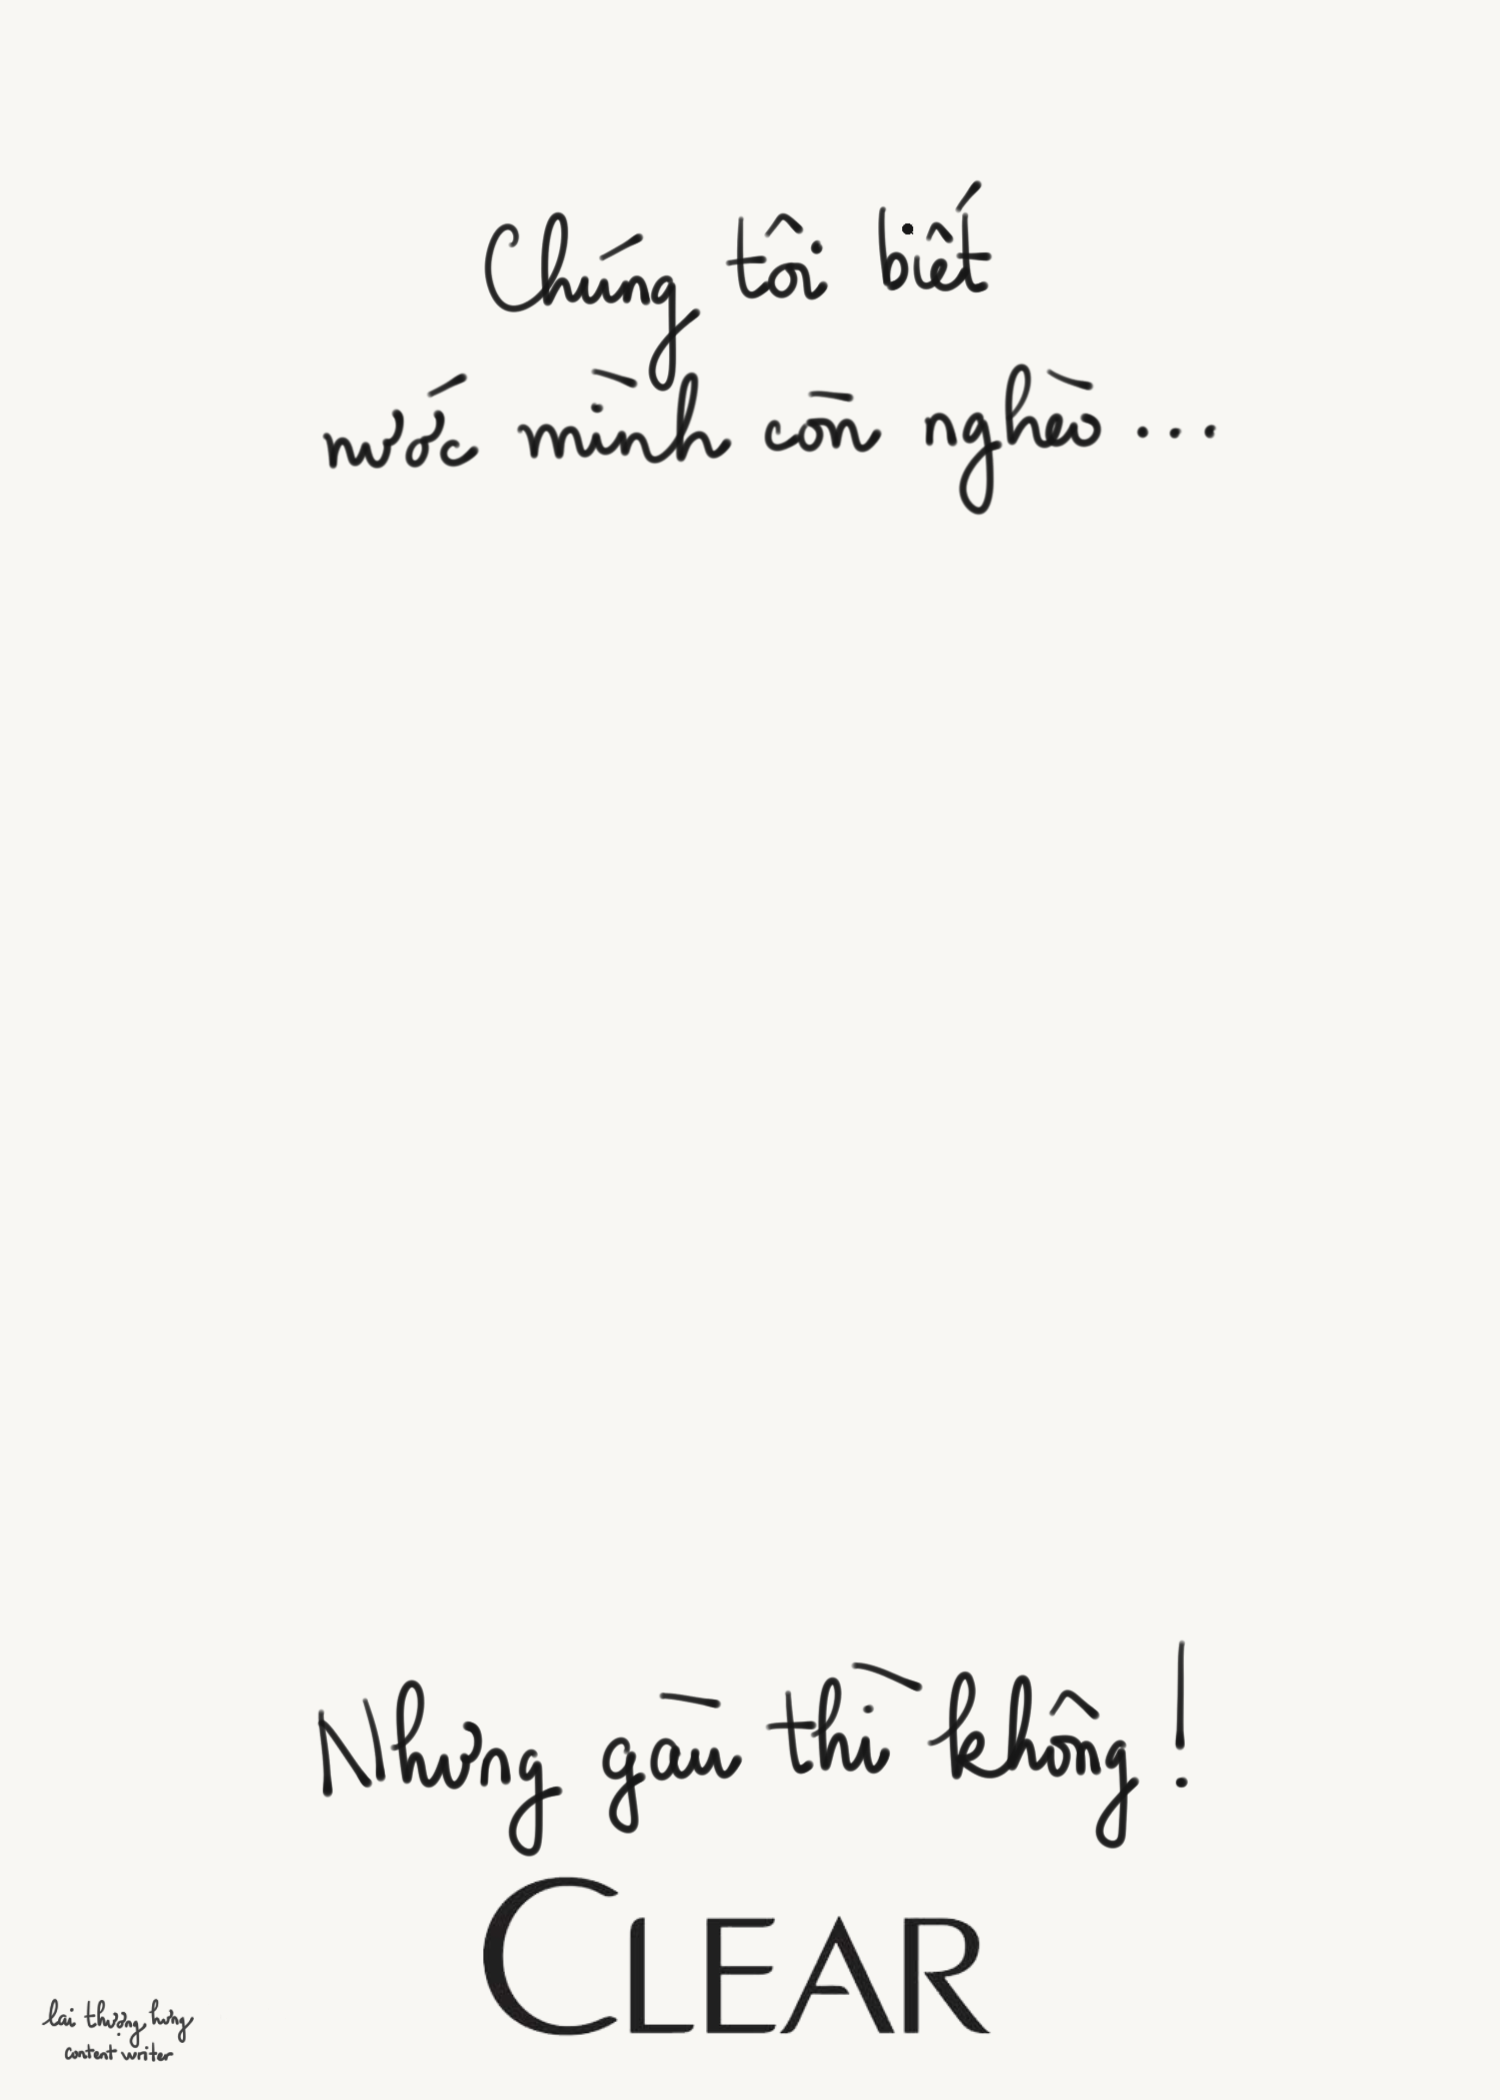 Chúng tôi biết
nước mình còn nghèo...
Nhưng gàu thì không!
CLEAR
lai thượng hưng
content writer